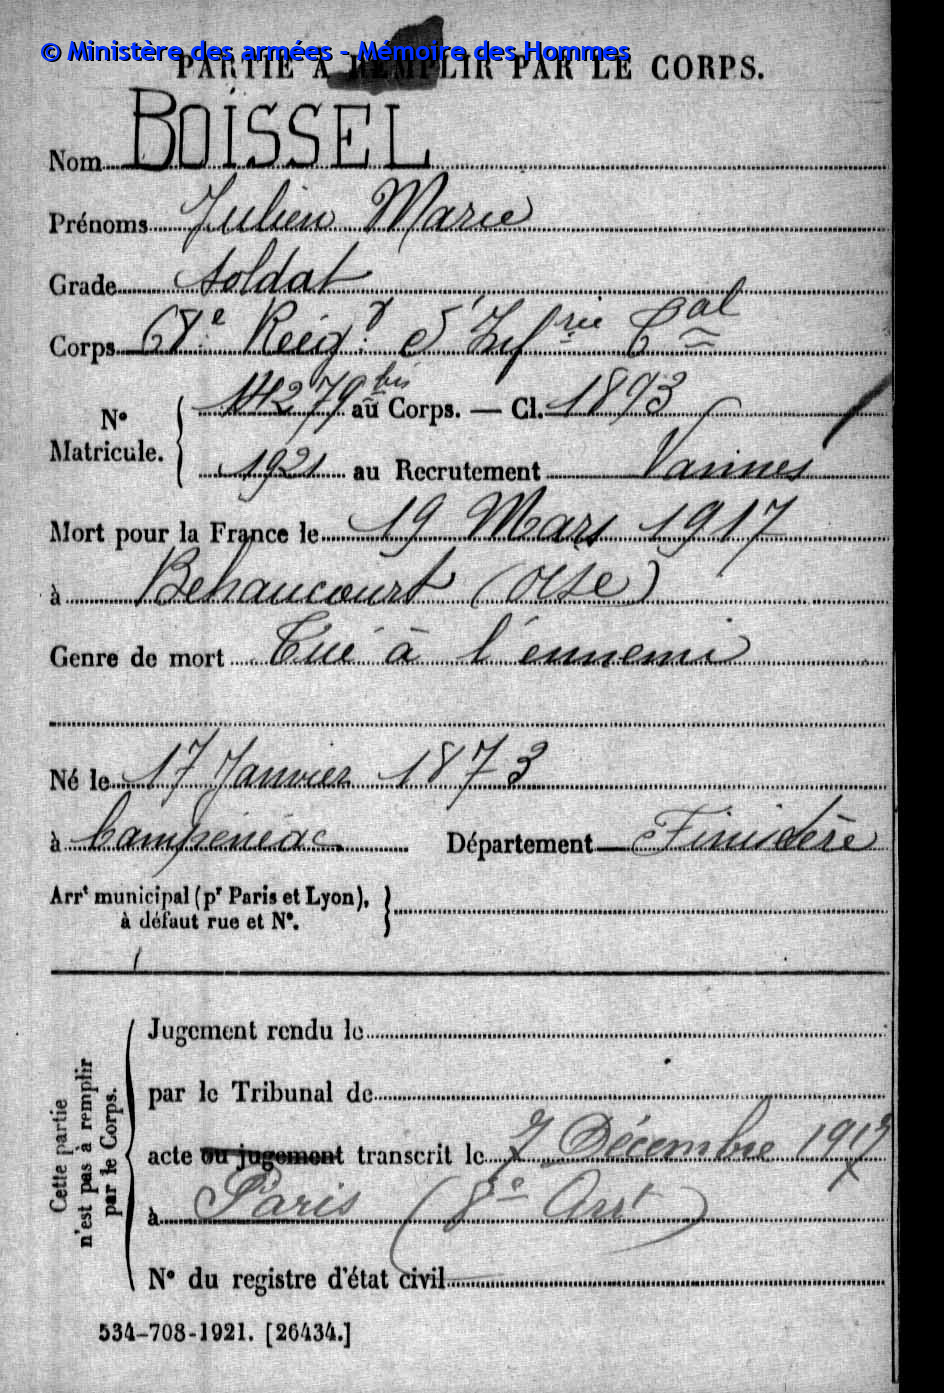 © Ministère des armées - Mémoire des Hommes
PARTIE A REMPLIR PAR LE CORPS.
Nom BOISSEL
Prénoms Julien Marie
Grade Soldat
Corps 68e Rég.t d'Inf.rie C.al
N° Matricule. 14279 bis au Corps. — Cl. 1893
1921 au Recrutement Vannes
Mort pour la France le 19 Mars 1917
à Behaucourt (Oise)
Genre de mort Tué à l'ennemi
Né le 17 Janvier 1873
à Campénéac Département Finistère
Arrt municipal (pr Paris et Lyon),
à défaut rue et N°.
Cette partie
n'est pas à remplir
par le Corps.
Jugement rendu le
par le Tribunal de
acte ou jugement transcrit le 7 Décembre 1917
à Paris (8e Arrt)
N° du registre d'état civil
534-708-1921. [26434.]